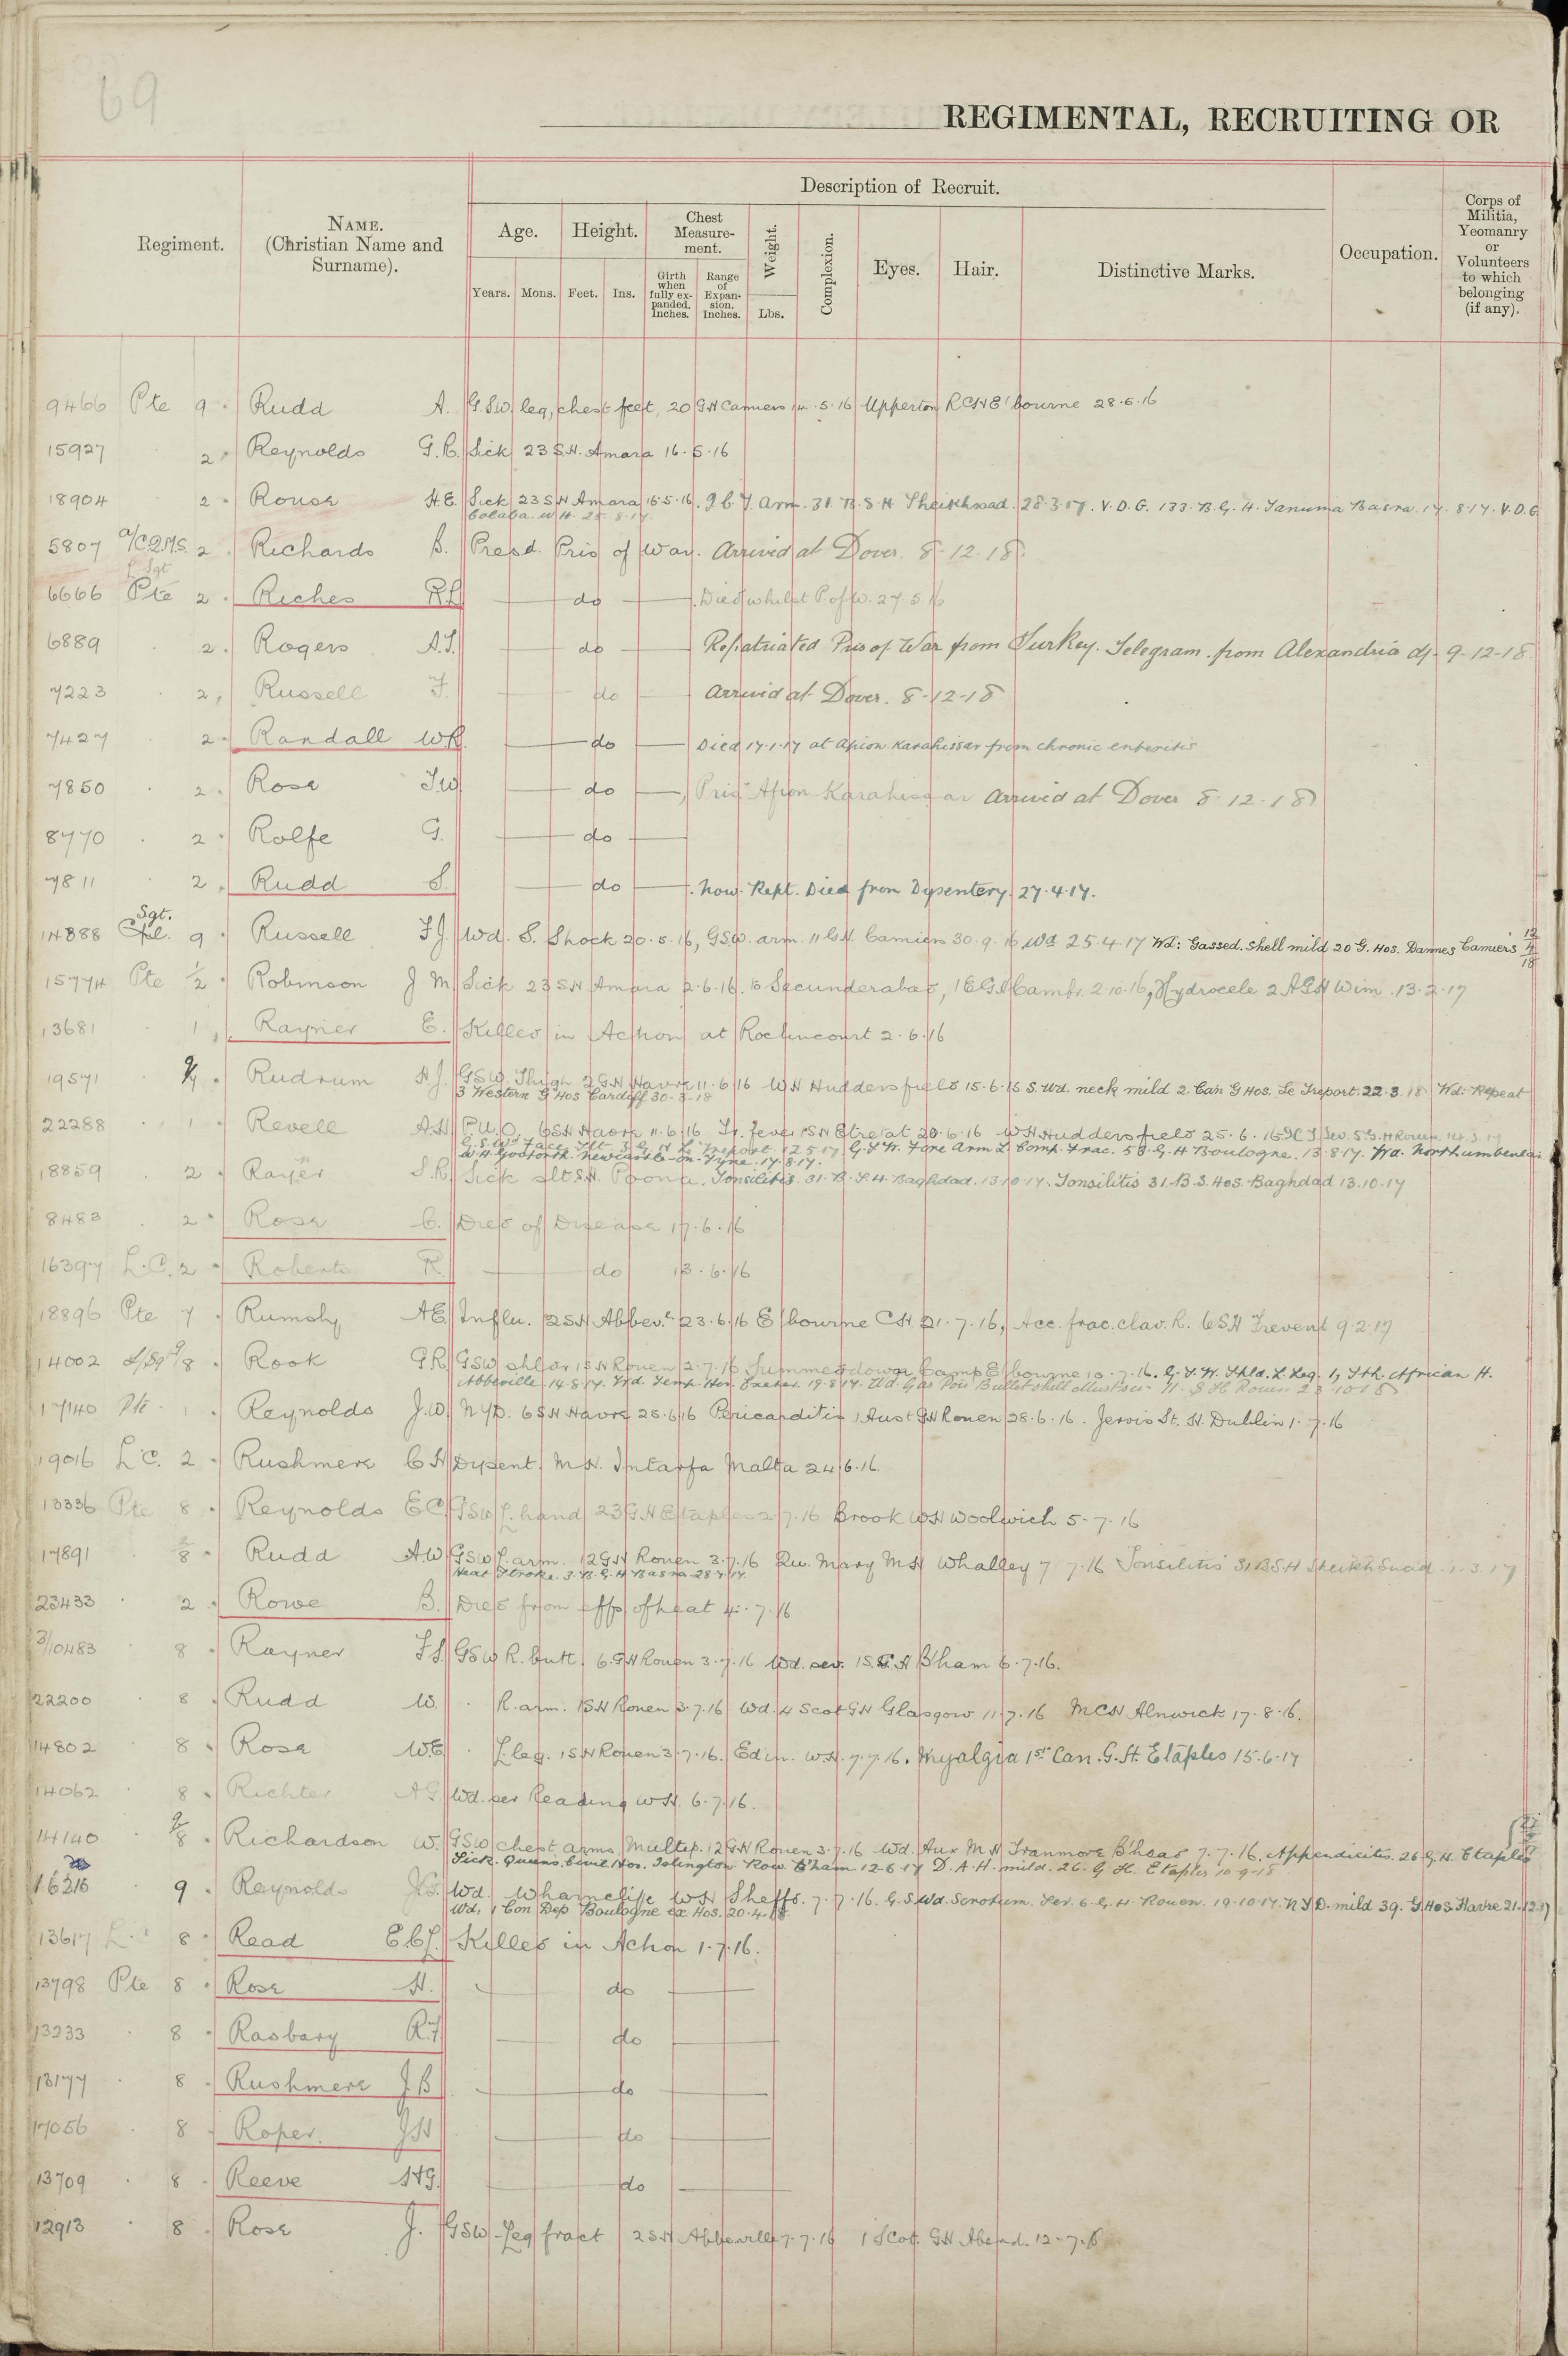 69
REGIMENTAL, RECRUITING OR
Regiment.
NAME.
(Christian Name and
Surname).
Description of Recruit.
Age.
Height.
Chest
Measure-
ment.
Weight.
Complexion.
Eyes.
Hair.
Distinctive Marks.
Occupation.
Corps of
Militia,
Yeomanry
or
Volunteers
to which
belonging
(if any).
Years.
Mons.
Feet.
Ins.
Girth
when
fully ex-
panded.
Inches.
Range
of
Expan-
sion.
Inches.
Lbs.
9466 Pte 9 Rudd A. G.S.W. leg, chest feet, 20 G H Camiers 14.5.16 Upperton R C H E'bourne 28.6.16
15927 2 Reynolds G.R. Sick 23 S.H. Amara 16.5.16
18904 2 Rouse H.E. Sick 23 S H Amara 16.5.16. I.C.T. Arm. 31. B.S.H Sheikhsaad. 28.3.17. V.D.G. 133. B.G.H. Tanuma Basra. 17.8.17. V.D.G
Colaba. W.H. 25.8.17.
5807 a/C.Q.M.S. 2 Richards B. Presd. Pris of War. Arrived at Dover. 8-12-18
L Sgt
6666 Pte 2 Riches R.L do Died whilst P of W. 27.5.16
6889 2 Rogers A.T. do Repatriated Pris of War from Turkey. Telegram from Alexandria d/- 9-12-18
7223 2 Russell F. do Arrived at Dover. 8-12-18
7427 2 Randall W.R. do Died 17.1.17 at Afion Karahissar from chronic enteritis
7850 2 Rose T.W. do Pris Afion Karahissar Arrived at Dover 8-12-18
8770 2 Rolfe G. do
7811 2 Rudd S. do now Rept. Died from Dysentery. 27.4.17.
Sgt.
14888 Cpl. 9 Russell F.J. Wd. S. Shock 20.5.16, GSW. arm. 11 G.H. Camiers 30.9.16 Wd 25.4.17 Wd: Gassed. Shell mild 20 G. Hos. Dannes Camiers 12/4/18
15774 Pte 1/2 Robinson J M Sick 23 S H Amara 2.6.16. to Secunderabad, 1 E G H Cambr. 2.10.16, Hydrocele 2 A G H Wim. 13.2.17
13681 1 Rayner E. Killed in Action at Roclincourt 2.6.16
19571 Rudrum H.J. GSW. Thigh 2 G H Havre 11.6.16 W H Huddersfield 15.6.16 S. Wd. neck mild 2. Can G Hos. Le Treport. 22.3.18 Wd: Repeat
3 Western G Hos Cardiff 30-3-18
22288 1 Revell A.H. P.U.O. 6 S H Havre 11.6.16 Tr. fever 1 S H Etretat 20.6.16 W H Huddersfield 25.6.16
G.S.Wd Face. 3. G H Le Treport 12.5.17. G.S.W. Fore Arm L Comp. Frac. 53. G.H Boulogne. 13.8.17. Wa. Northumberland
W.H. Gosforth. Newcastle-on-Tyne. 17.8.17.
18859 2 S.R. Sick S.H. Poona. Tonsilitis. 31.B.S.H. Baghdad. 13.10.17. Tonsilitis 31.B.S.Hos. Baghdad 13.10.17
8483 2 Rose C. Died of Disease 17.6.16
16397 L.C. 2 Roberts R. do 13.6.16
18896 Pte 7 Rumsby A E Influ. 2 S H Abbev. 23.6.16 E'bourne C H 21.7.16, Acc. frac. clav. R. 6 S H Frevent 9.2.17
14002 Rook G R GSW shldr 1 S H Rouen 2.7.16 Summerdown Camp E'bourne 10.7.16. G.S.W. Shld. L Leg. 1, Sth. African H.
Abbeville. 14.8.17. Temp Hos. Exeter. 19.8.17. Wd. Gas Pois Rouen 23.10.18
17140 Pte 1 Reynolds J.W. NYD. 6 S H Havre 25.6.16 Pericarditis 1 Aust G H Rouen 28.6.16. Jervis St. H. Dublin 1.7.16
19016 L C. 2 Rushmere C H Dysent. M H. Imtarfa Malta 24.6.16
13336 Pte 8 Reynolds E C. GSW L. hand 23 G H Etaples 2.7.16 Brook W H Woolwich 5.7.16
17891 Rudd A.W. GSW L. arm. 12 G H Rouen 3.7.16 Qu. Mary M H Whalley 7.7.16 Tonsilitis 31 B S H Sheikh Saad. 1.3.17
Heat Stroke. 3. B.G.H Basra. 28.7.17.
23433 2 Rowe B. Died from effs of heat 4.7.16
3/10483 8 Rayner F S GSW R. butt. 6. G H Rouen 3.7.16 Wd. sev. 1 S. G H B'ham 6.7.16.
22200 8 Rudd W. R. arm. 1 S H Rouen 3.7.16 Wd. 4 Scot G H Glasgow 11.7.16 M C H Alnwick 17.8.16.
14802 8 Rose W.E. L. leg. 1 S H Rouen 3.7.16. Edin. W.H. 7.7.16. Myalgia 1st Can. G. H. Etaples 15.6.17
14062 8 Richter A G Wd. ser Reading W H. 6.7.16.
14140 2/8 Richardson W. GSW Chest arms Multip. 12 G H Rouen 3.7.16 Wd. Aux M H Tranmore B'head 7.7.16. Appendicitis. 26 G.H. Etaples
Sick. Queens Civil Hos. Islington Row B'ham 12.6.17 D.A.H. mild. 26. G H. Etaples 10-9-18
16316 9 Reynolds Wd. Wharncliffe W H Sheffs. 7.7.16. G.S.Wd. Scrotum. Sev. 6. G.H. Rouen. 19.10.17. N Y D. mild 39. G Hos. Havre 21.12.17
Wd, 1 Con Dep Boulogne ex Hos. 20.4.18.
13617 L.C 8 Read E.C.J. Killed in Action 1.7.16.
13798 Pte 8 Rose H. do
13233 8 Rasbary R.F do
13177 8 Rushmere J.B do
17056 8 Roper. J H do
13709 8 Reeve H G. do
12913 8 Rose J. GSW Leg fract 2 S H Abbeville 7.7.16 1 Scot. G H Aberd. 12.7.16